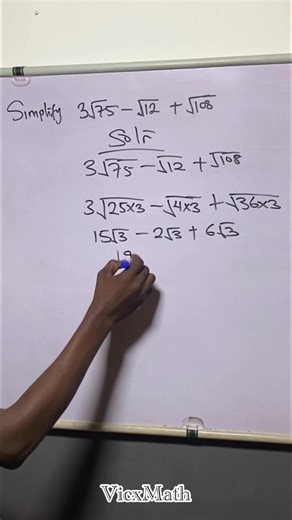 Simplify 3√75 − √12 + √108
Solⁿ
3√75 − √12 + √108
3√25×3 − √4×3 + √36×3
15√3 − 2√3 + 6√3
19
VicxMath